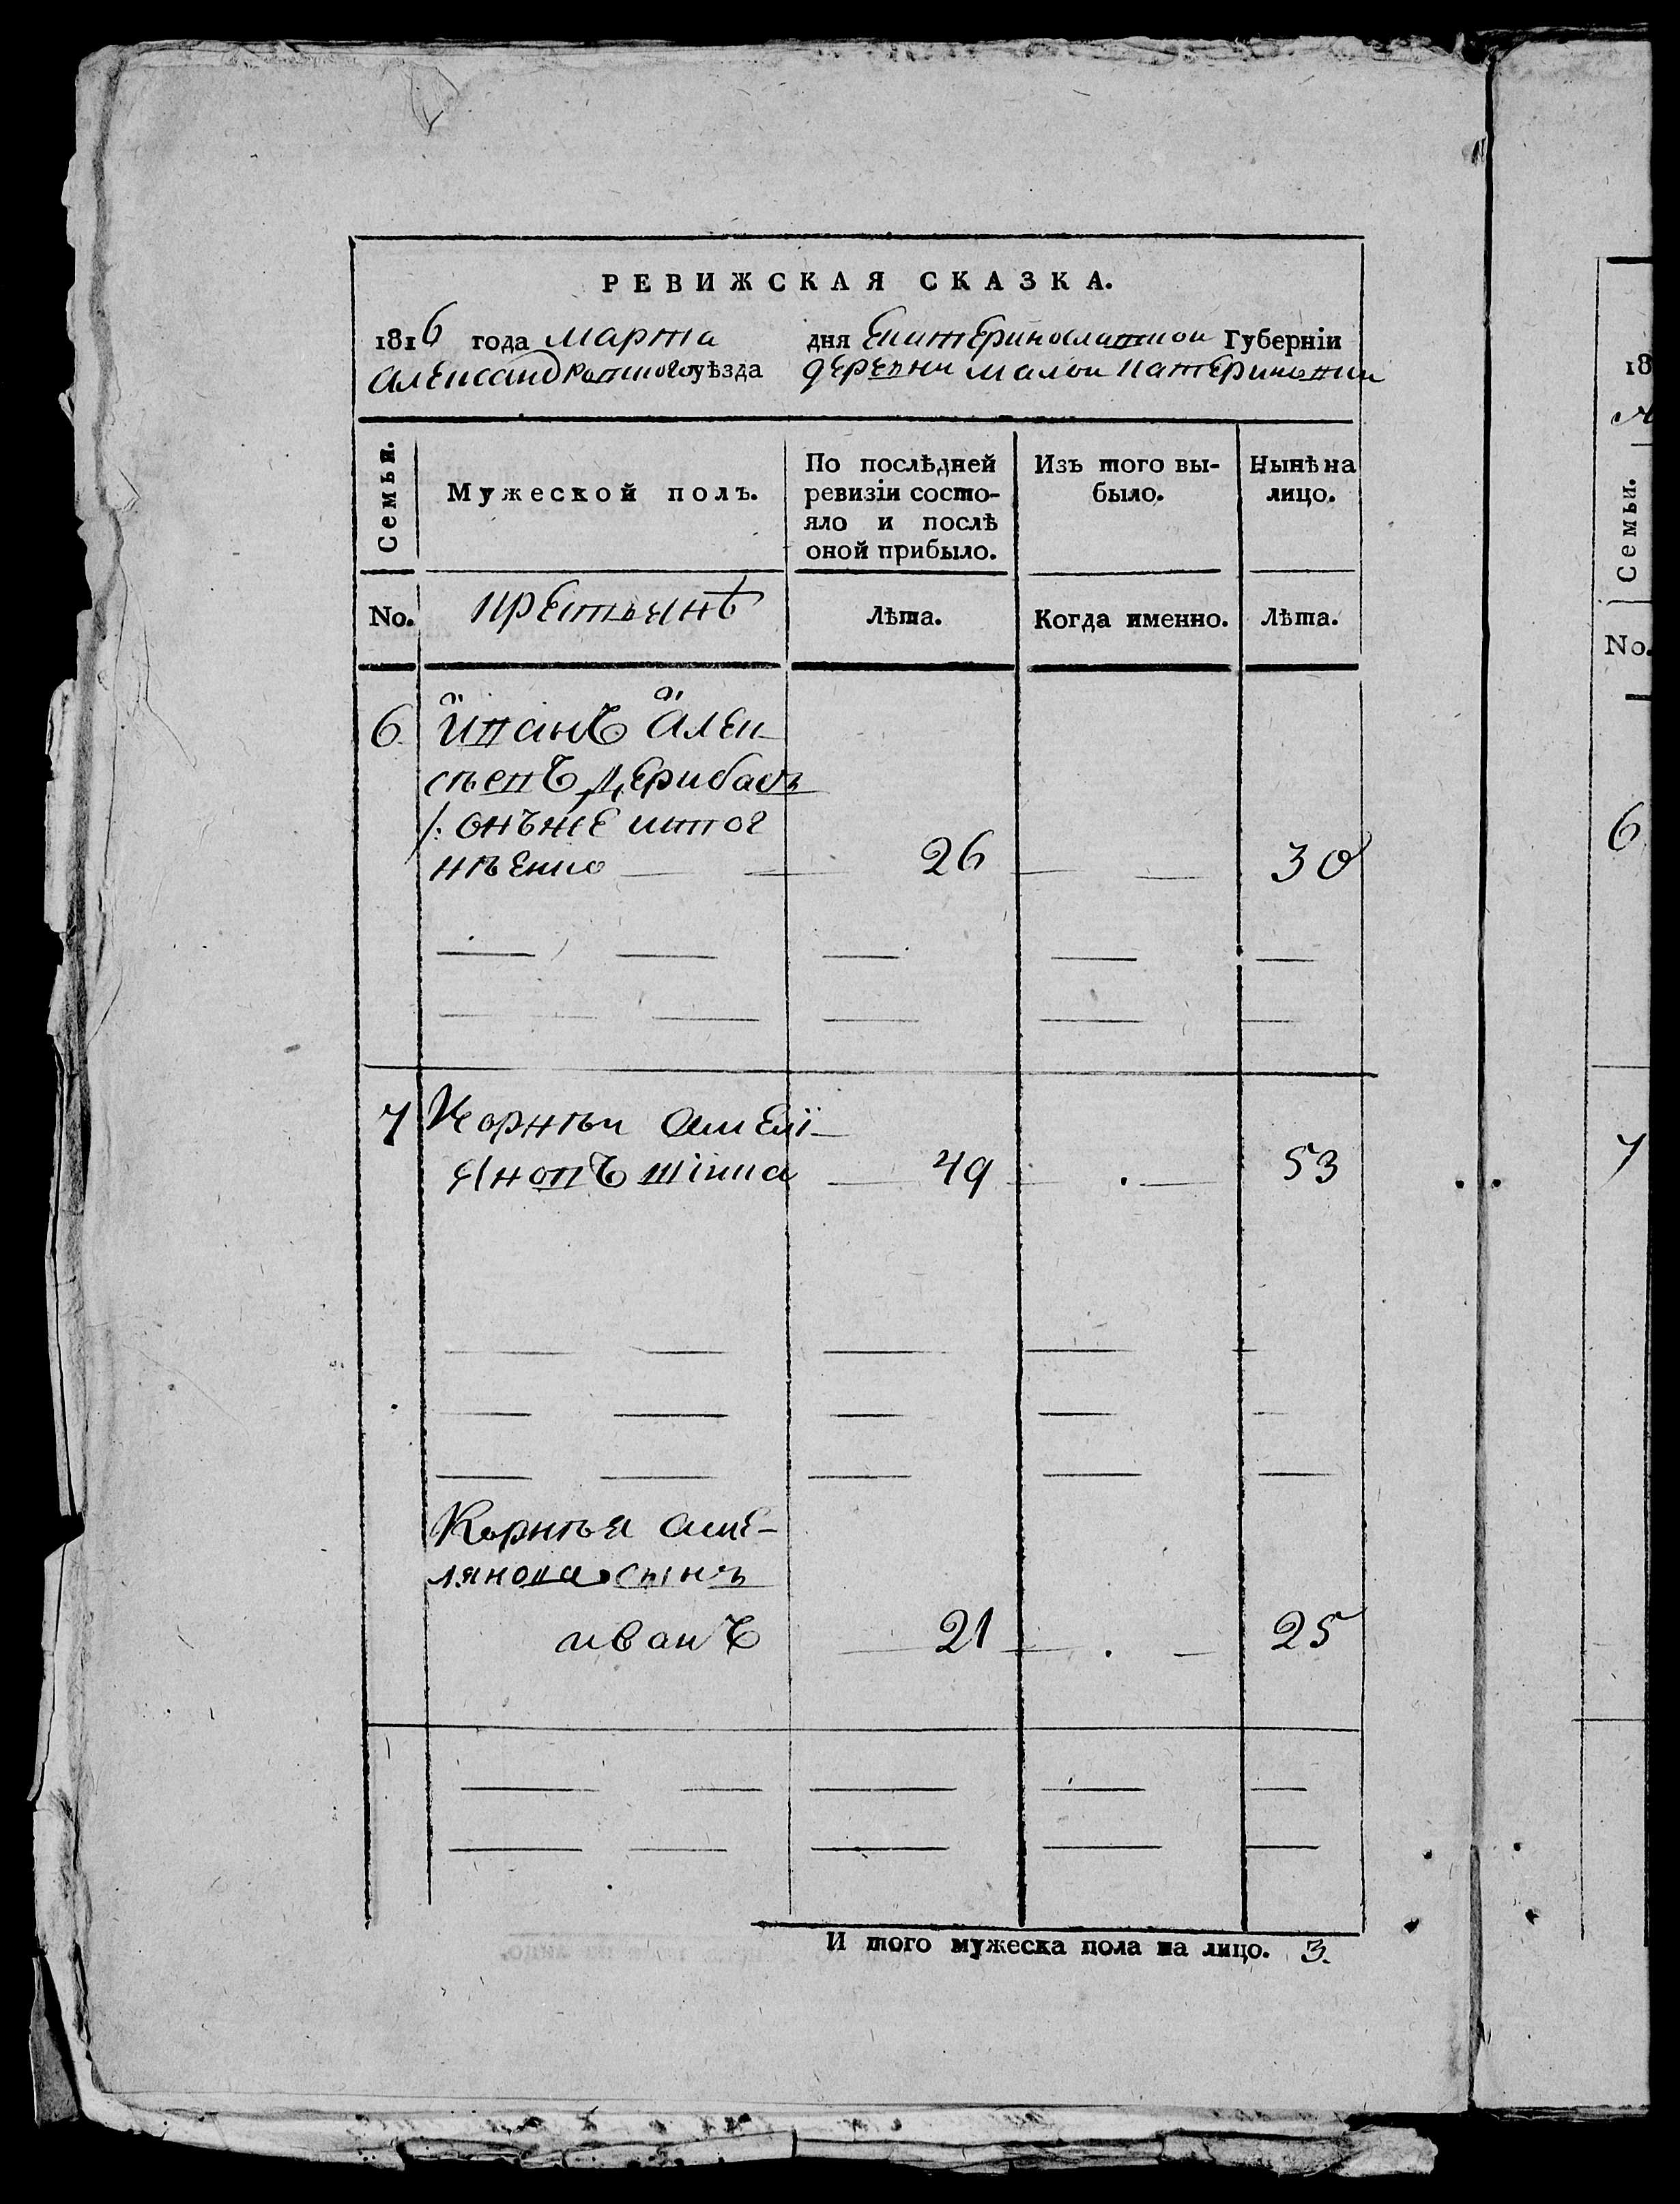 РЕВИЖСКАЯ СКАЗКА.
1816 года марта дня Екатеринославской Губерніи
Александровского уѣзда деревни малой катериновки
Семьи. Мужеской полъ. По послѣдней ревизіи состо-яло и послѣ оной прибыло. Изъ того вы-было. Нынѣ на лицо.
No. крестьянѣ Лѣта. Когда именно. Лѣта.
6 иванъ алек
сѣевъ дерибасъ
/: онъже
26 30
7 Корнѣй амелі
яновъ шишка 49 53
Корнѣя аме-
лянова сынъ
иванъ 21 25
И того мужеска пола на лицо. 3.
18
Семьи.
No.
6
7